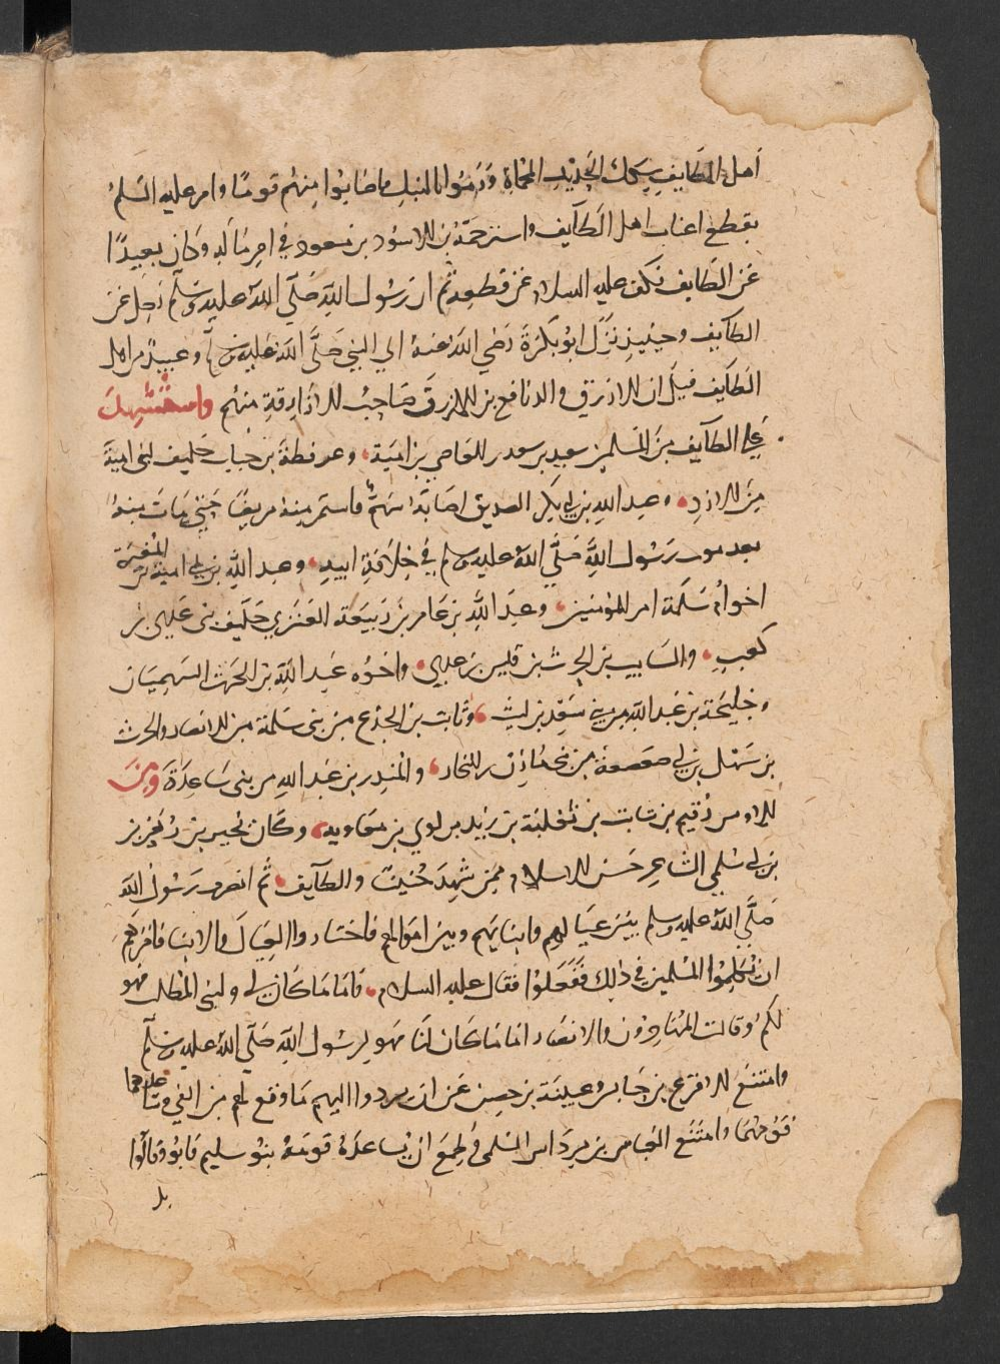 اهل الطايف سكك الحديد المحماة ورموا بالنبل فاصابوا منهم قوما وامر عليه السلم
بقطع اعناب اهل الطايف واسترحمه بن الاسود بن مسعود في امر ماله وكان بعيدا
عن الطايف فكف عليه السلام عن قطعه ثم ان رسول الله صلى الله عليه وسلم رحل عن
الطايف وحينيذ نزل ابو بكرة رضي الله عنه الي النبي صلى الله عليه وسلم وعبيد من اهل
الطايف قيل ان الازرق والد نافع بن الازرق صاحب الازارقة منهم واستشهد
علي الطايف من المسلمين سعيد بن سعيد بن العاصي بن امية وعرفطة بن جناب حليف لبني امية
من الازد وعبد الله بن ابي بكر الصديق اصابه سهم فاستمر منه مريضا حتي مات منه
بعد موت رسول الله صلى الله عليه وسلم في خلافة ابيه وعبد الله بن ابي امية بن المغيرة
اخو ام سلمة ام المؤمنين وعبد الله بن عامر بن ربيعة العنزي حليف بني عدي بن
كعب والسايب بن الحرث بن قيس بن عدي واخوه عبد الله بن الحرث السهميان
وجليحة بن عبد الله من بني سعد بن ليث وثابت بن الجذع من بني سلمة من الانصار والحرث
بن سهل بن ابي صعصعة من بني مازن بن النجار والمنذر بن عبد الله من بني ساعدة ومن
الاوس رقيم بن ثابت بن ثعلبة بن زيد بن لوي بن معاوية وكان بجير بن زهير بن
بن ابي سلمي الشاعر حسن الاسلام ممن شهد حنينا والطايف ثم انصرف رسول الله
صلى الله عليه وسلم بين عيالهم وابنايهم وبين اموالهم فاختاروا العيال والابنا فامرهم
ان يكلموا المسلمين في ذلك ففعلوا فقال عليه السلام اما ما كان لي ولبني المطلب فهو
لكم وقالت المهاجرون والانصار اما ما كان لنا فهو لرسول الله صلى الله عليه وسلم
وامتنع الاقرع بن حابس وعيينة بن حصن عن ان يردوا اليهم ما وقع لهم من الفي وتابعهما
قومهما وامتنع العباس بن مرداس السلمي وطمع ان يساعده قومه بنو سليم فابوا وقالوا
بل